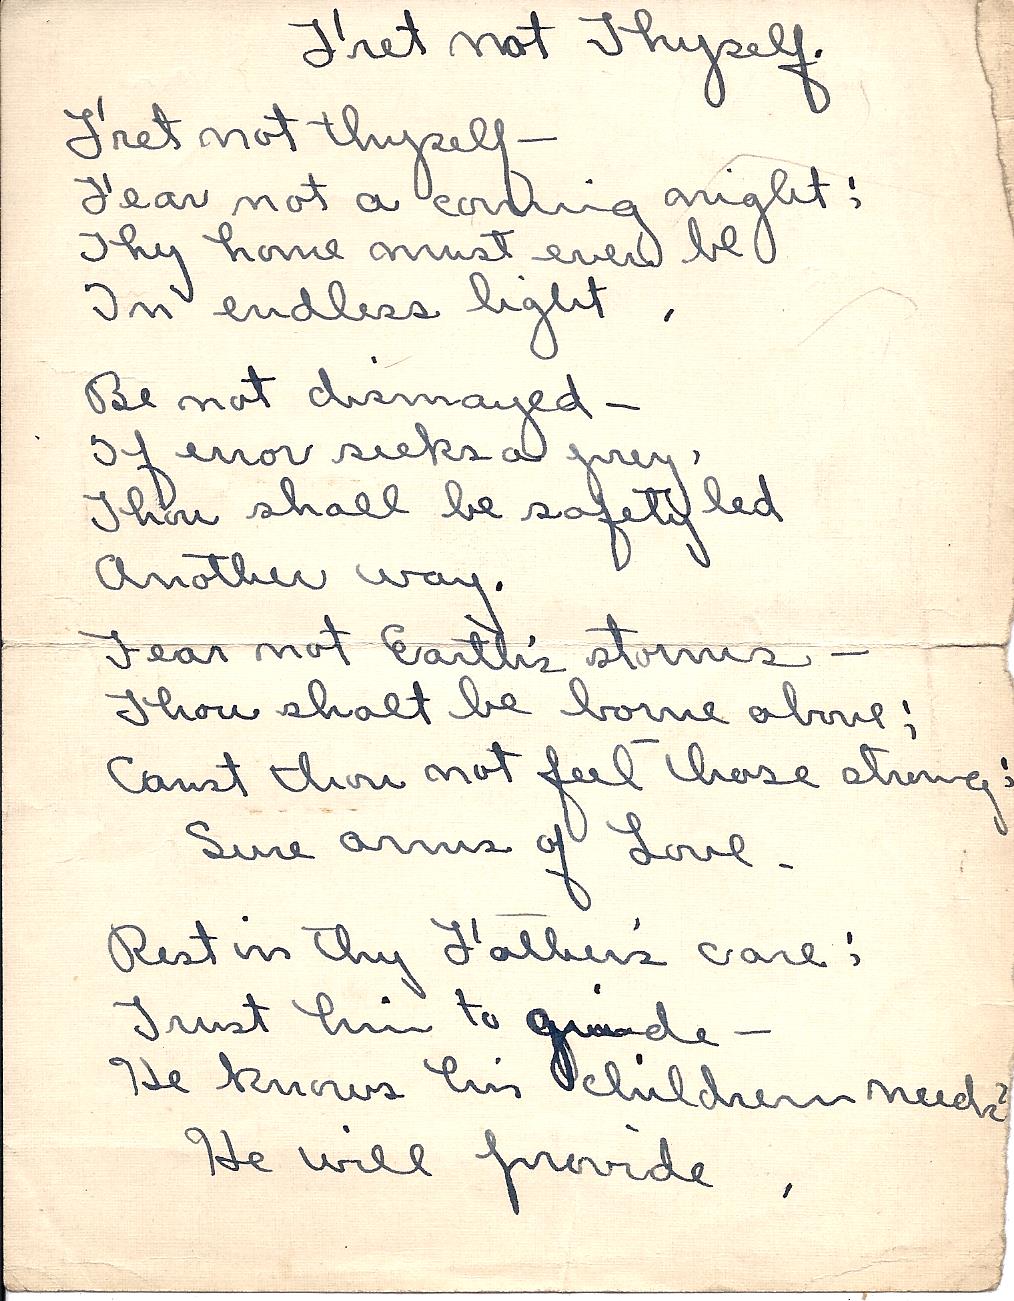 Fret not Thyself.
Fret not thyself —
Fear not a coming night;
Thy home must ever be
In endless light ,
Be not dismayed —
If error seeks a prey,
Thou shall be safety led
Another way.
Fear not Earth's storms —
Thou shalt be borne above;
Canst thou not feel those strong;
Sure arms of Love -
Rest in thy Father's care;
Trust him to guide —
He knows his children needs
He will provide ,